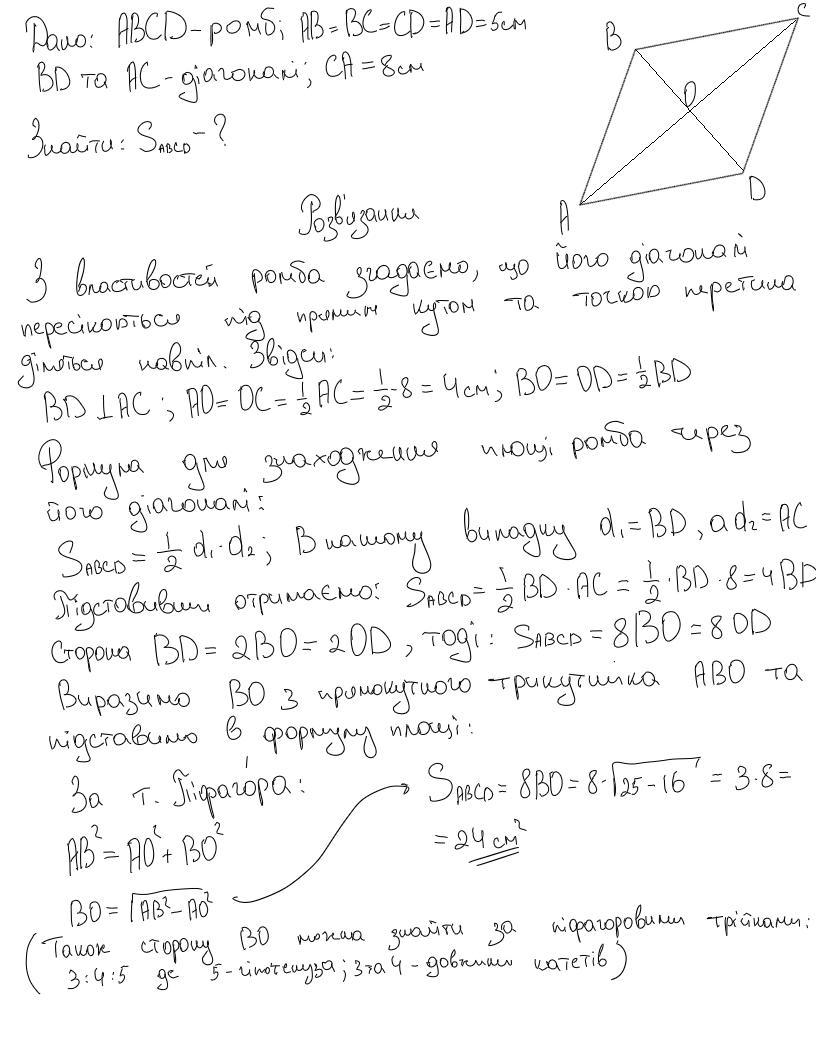 Дано: ABCD - ромб; AB = BC = CD = AD = 5см
BD та AC - діагоналі; CA = 8см
Знайти: S_ABCD - ?
B
C
O
A
D
Розв'язання
З властивостей ромба згадаємо, що його діагоналі
пересікаються під прямим кутом та точкою перетина
діляться навпіл. Звідси:
BD ⊥ AC ; AO = OC = 1/2 AC = 1/2 · 8 = 4см; BO = OD = 1/2 BD
Формула для знаходження площі ромба через
його діагоналі:
S_ABCD = 1/2 d₁ · d₂ ; В нашому випадку d₁ = BD , а d₂ = AC
Підставивши отримаємо: S_ABCD = 1/2 BD · AC = 1/2 · BD · 8 = 4BD
Сторона BD = 2BO = 2OD , тоді : S_ABCD = 8BO = 8OD
Виразимо BO з прямокутного трикутника ABO та
підставимо в формулу площі:
За т. Піфагора:
AB² = AO² + BO²
BO = √(AB² - AO²)
S_ABCD = 8BO = 8 · √(25 - 16) = 3 · 8 =
= 24 см²
(Також сторону BO можна знайти за піфагоровими трійками:
3:4:5 де 5 - гіпотенуза ; 3 та 4 - довжини катетів)